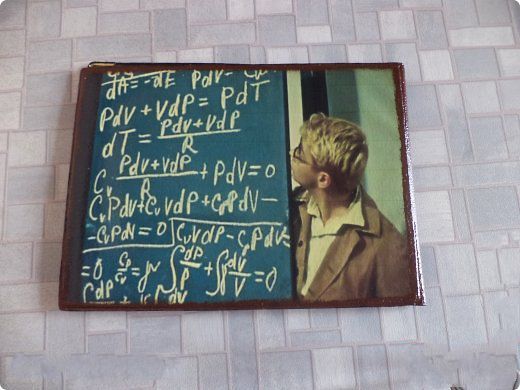 dA = -dE PdV = Cv
PdV + VdP = PdT
dT = PdV+VdP / R
Cv PdV+VdP / R + PdV = 0
CvPdV+CvVdP + CvPdV -
-CvPdV = 0 CvVdP - CpPdV =
= 0 Cp/Cv = γ ∫ dP/P + ∫γ dV/V = 0
∫dP + ∫